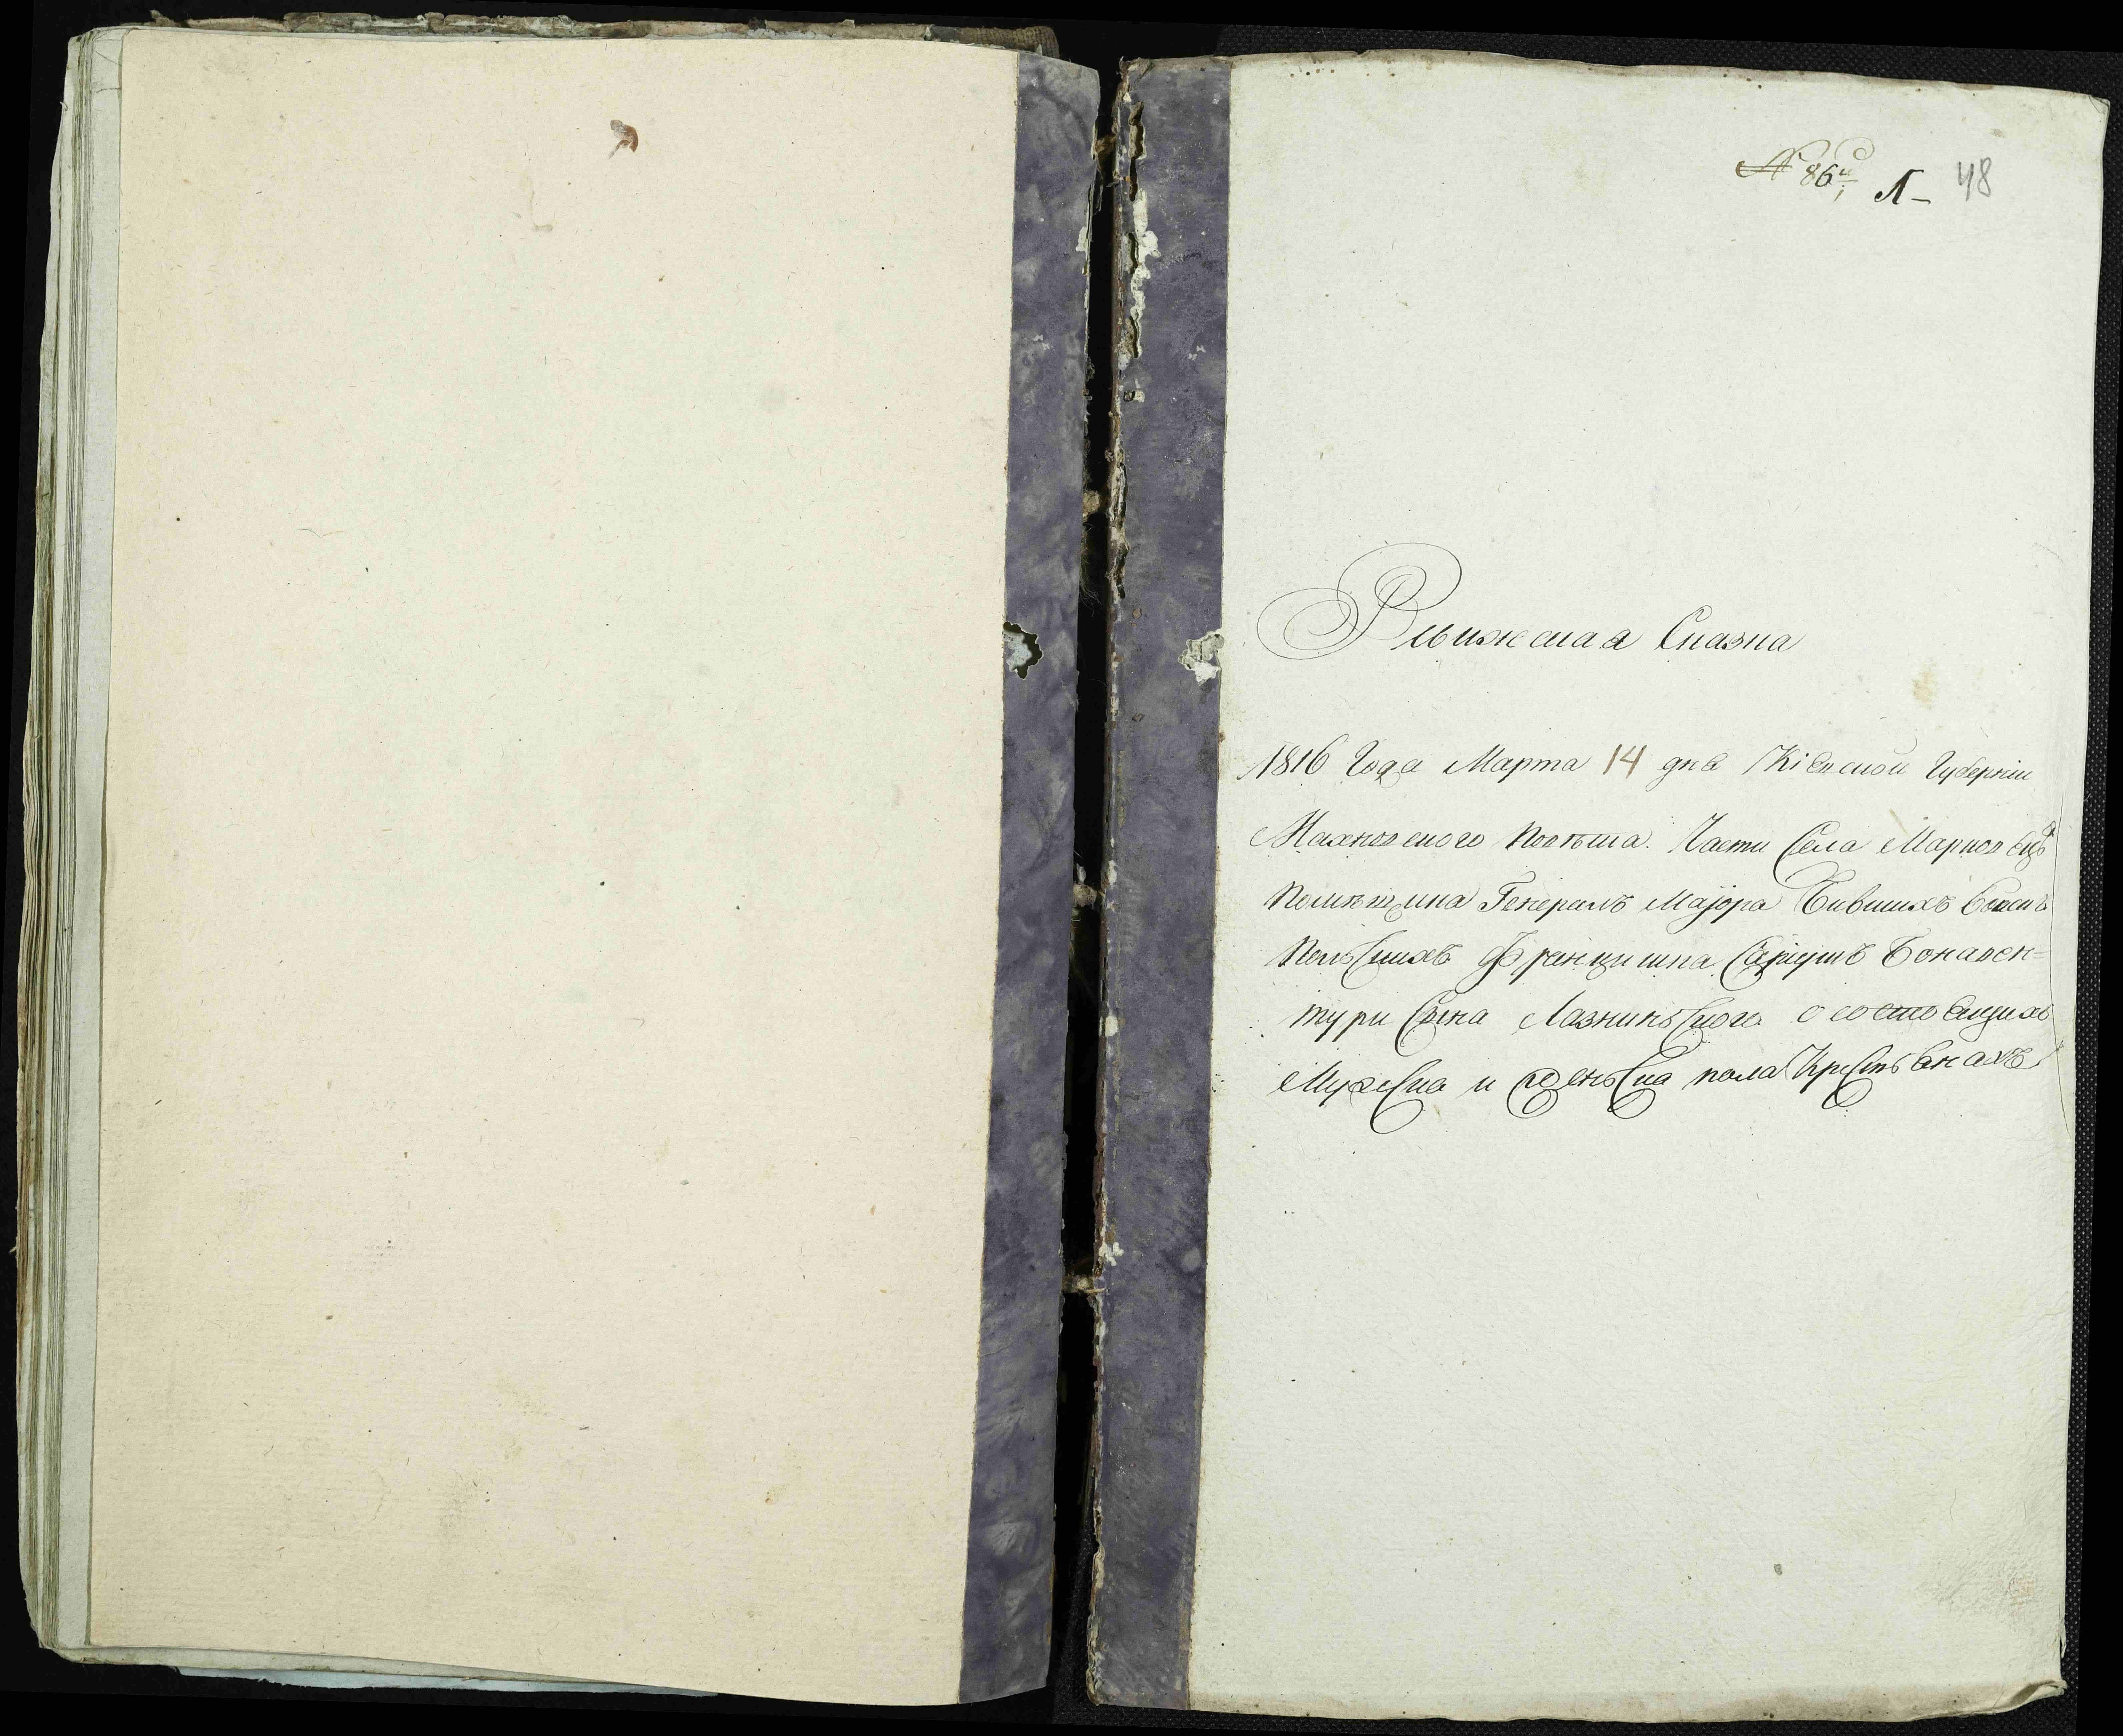 № 86й Л- 48
Ревижская Сказка
1816 Года Марта 14 дня Кіевской Губерніи
Махновского Повѣта. Части Села Марковецъ
Помѣщика Генералъ Маіора Бившихъ Войскъ
Польскихъ Францишка Бонавен=
тури Сына Лазнинského о состоящихъ
Мужеска и женьска пола Крестьянахъ